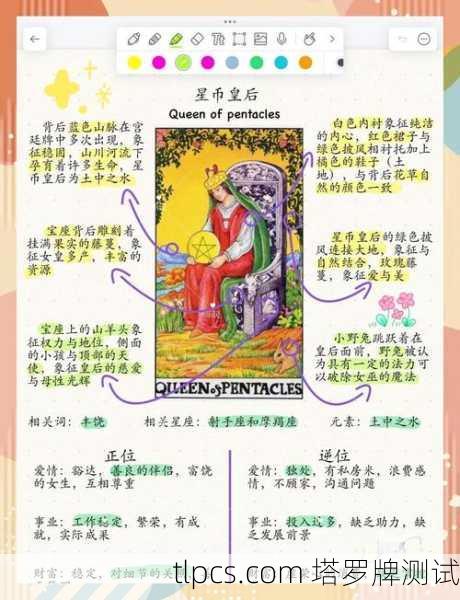 星币皇后
Queen of pentacles
背后蓝色山脉在宫
廷牌中多次出现，象
征稳固，山川河流下
孕育着许多生命，星
币皇后为土中之水
宝座背后雕刻着
挂满果实的藤蔓，象
征女皇多产，丰富的
资源
宝座上的山羊头象
征权力与地位，侧面
的小孩与顶部的天
使，象征皇后的慈爱
与母性光辉
白色内衬象征纯洁
的内心，红色裙子与
绿色披风相衬托加上
橘色的鞋子（土
地），与背后花草自
然的颜色一致
星币皇后的绿色披
风连接大地，象征与
自然结合，玫瑰藤
蔓，象征爱与美
小野兔跳跃着在
皇后面前，野兔被认
为具有一定的法力可
以破除女巫的魔法
QUEEN of PENTACLES
相关词：丰饶
相关星座：射手座和摩羯座
元素：土中之水
正位
爱情：豁达，善良的伴侣，富饶
的女生，互相尊重
事业：工作稳定，繁荣，有成
就，实际成果
财富：稳定，对细节的关
逆位
爱情：独处，有私房米，浪费感
情，不顾家，沟通问题
事业：投入过多，缺乏助力，缺
乏发展前景
tlpcs.com 塔罗牌测试